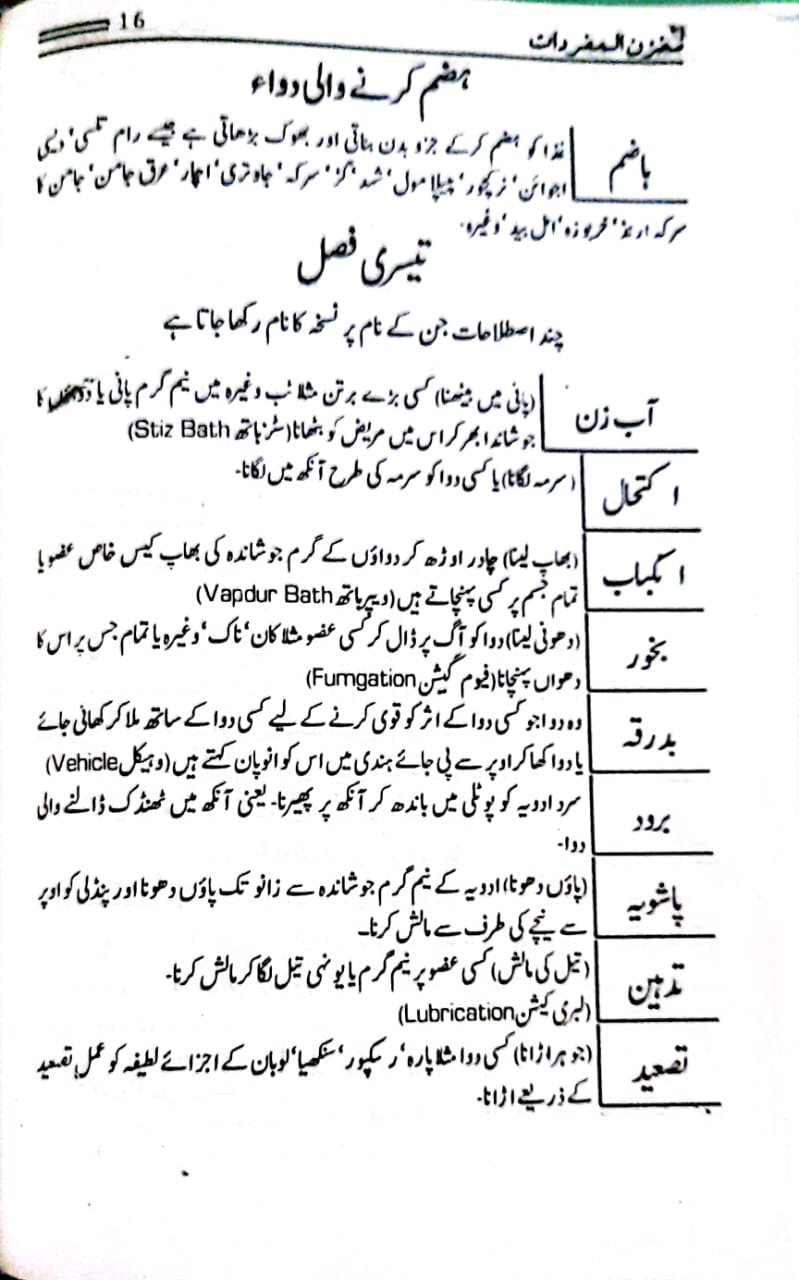 16
مخزن المفردات
ہضم کرنے والی دواء
ہاضم
غذا کو ہضم کرکے جزو بدن بناتی اور بھوک بڑھاتی ہے جیسے رام تلسی‘ دیسی
اجوائن‘ نرکچور‘ پیپلا مول‘ شہد‘ گڑ‘ سرکہ‘ جاوتری‘ اچار‘ عرق جامن‘ جامن کا
سرکہ ارنڈ‘ خربوزہ‘ امل بید‘ وغیرہ۔
تیسری فصل
چند اصطلاحات جن کے نام پر نسخہ کا نام رکھا جاتا ہے
آب زن
(پانی میں بیٹھنا) کسی بڑے برتن مثلا ٹب وغیرہ میں نیم گرم پانی یا دواؤں کا
جوشاندا بھر کر اس میں مریض کو بٹھانا (سٹز باتھ Stiz Bath)
اکتحال
(سرمہ لگانا) یا کسی دوا کو سرمہ کی طرح آنکھ میں لگانا۔
انکباب
(بھاپ لینا) چادر اوڑھ کر دواؤں کے گرم جوشاندہ کی بھاپ کیس خاص عضو یا
تمام جسم پر کسی پہنچاتے ہیں (ویپر باتھ Vapdur Bath)
بخور
(دھونی لینا) دوا کو آگ پر ڈال کر کسی عضو مثلا کان‘ ناک‘ وغیرہ یا تمام جس پر اس کا
دھواں پہنچانا (فیوم گیشن Fumgation)
بدرقہ
وہ دوا جو کسی دوا کے اثر کو قوی کرنے کے لیے کسی دوا کے ساتھ ملا کر کھائی جائے
یا دوا کھا کر اوپر سے پی جائے ہندی میں اس کو انوپان کہتے ہیں (وہیکل Vehicle)
برود
سرد ادویہ کو پوٹلی میں باندھ کر آنکھ پر پھیرنا۔ یعنی آنکھ میں ٹھنڈک ڈالنے والی
دوا۔
پاشویہ
(پاؤں دھونا) ادویہ کے نیم گرم جوشاندہ سے زانو تک پاؤں دھونا اور پنڈلی کو اوپر
سے نیچے کی طرف سے مالش کرنا۔
تدہین
(تیل کی مالش) کسی عضو پر نیم گرم یا یونہی تیل لگا کر مالش کرنا۔
(لبری کیشن Lubrication)
تصعید
(جوہر اڑانا) کسی دوا مثلا پارہ‘ رسکپور‘ سنکھیا‘ لوبان کے اجزائے لطیفہ کو عمل تصعید
کے ذریعے اڑانا۔